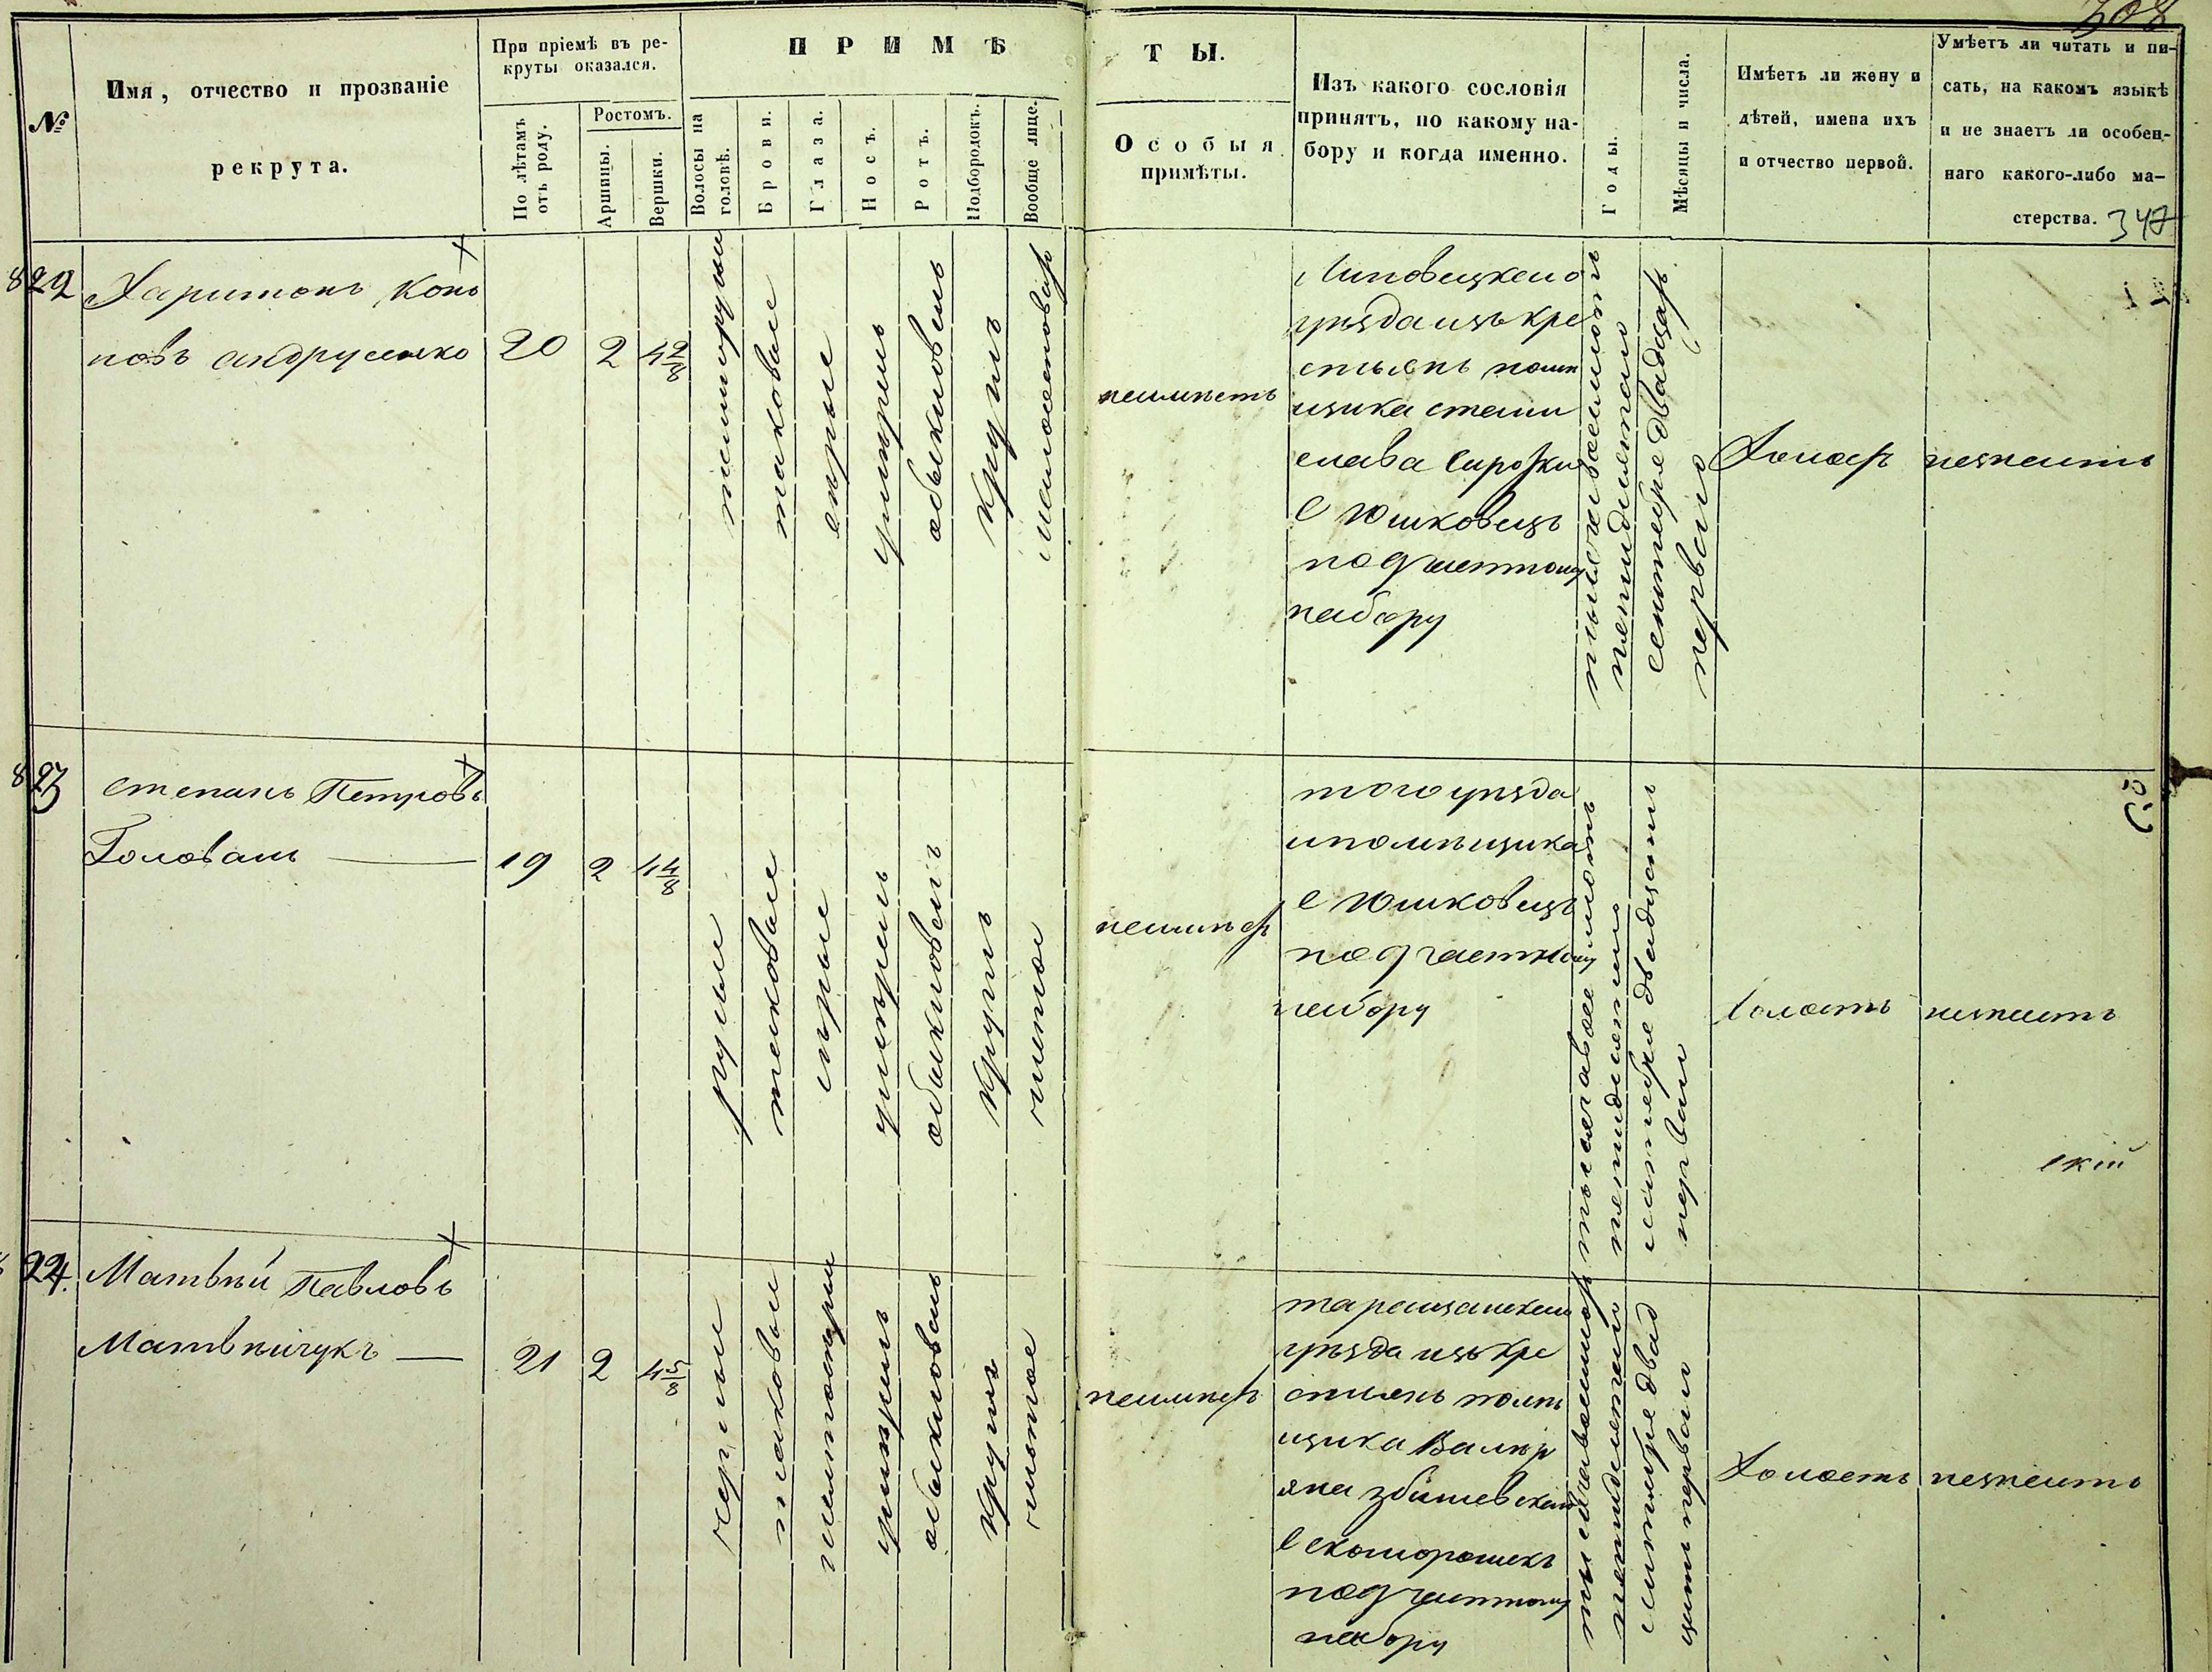 308
№
Имя, отчество и прозваніе
рекрута.
При пріемѣ въ ре-
круты оказался.
По лѣтамъ
отъ роду.
Ростомъ.
Аршины.
Вершки.
ПРИМѢ
Волосы на
головѣ.
Брови.
Глаза.
Носъ.
Ротъ.
Подбородокъ.
Вообще лице.
ТЫ.
Особыя
примѣты.
Изъ какого сословія
принятъ, по какому на-
бору и когда именно.
Годы.
Мѣсяцы и числа.
Имѣетъ ли жену и
дѣтей, имена ихъ
и отчество первой.
Умѣетъ ли читать и пи-
сать, на какомъ языкѣ
и не знаетъ ли особен-
наго какого-либо ма-
стерства.
347
822
Харитонъ Коно
новъ Андрусенко
20
2
4 2/8
темнорусые
таковые
сѣрые
умѣренъ
обыкновенъ
круглъ
неимѣетъ
Липовецкаго
уѣзда изъ кре
стьянъ помѣ
щика стани
слава
с Юшковецъ
под частному
набору
тысяча восемьсотъ
пятидесятаго
сентебре двадцать
перваго
Холостъ
незнаетъ
823
Степанъ Петровъ
Голованъ
19
2
4 4/8
русые
таковые
сѣрые
умѣренъ
обыкновенъ
круглъ
чистое
неимѣетъ
того уѣзда
и помѣщика
с Юшковецъ
под частному
набору
тысяча восемьсотъ
пятидесятаго
сентебре двадцать
перваго
Холостъ
незнаетъ
скій
824.
Матвѣй Павловъ
Матвѣйчукъ
21
2
4 5/8
черные
таковые
умѣренъ
обыкновенъ
круглъ
чистое
неимѣетъ
таращанскаго
уѣзда изъ кре
стьянъ помѣ
щика Валер
яна збышевскаго
с скоморошекъ
под частному
набору
тысяча восемьсотъ
пятидесятаго
сентебре двад
цать перваго
Холостъ
незнаетъ